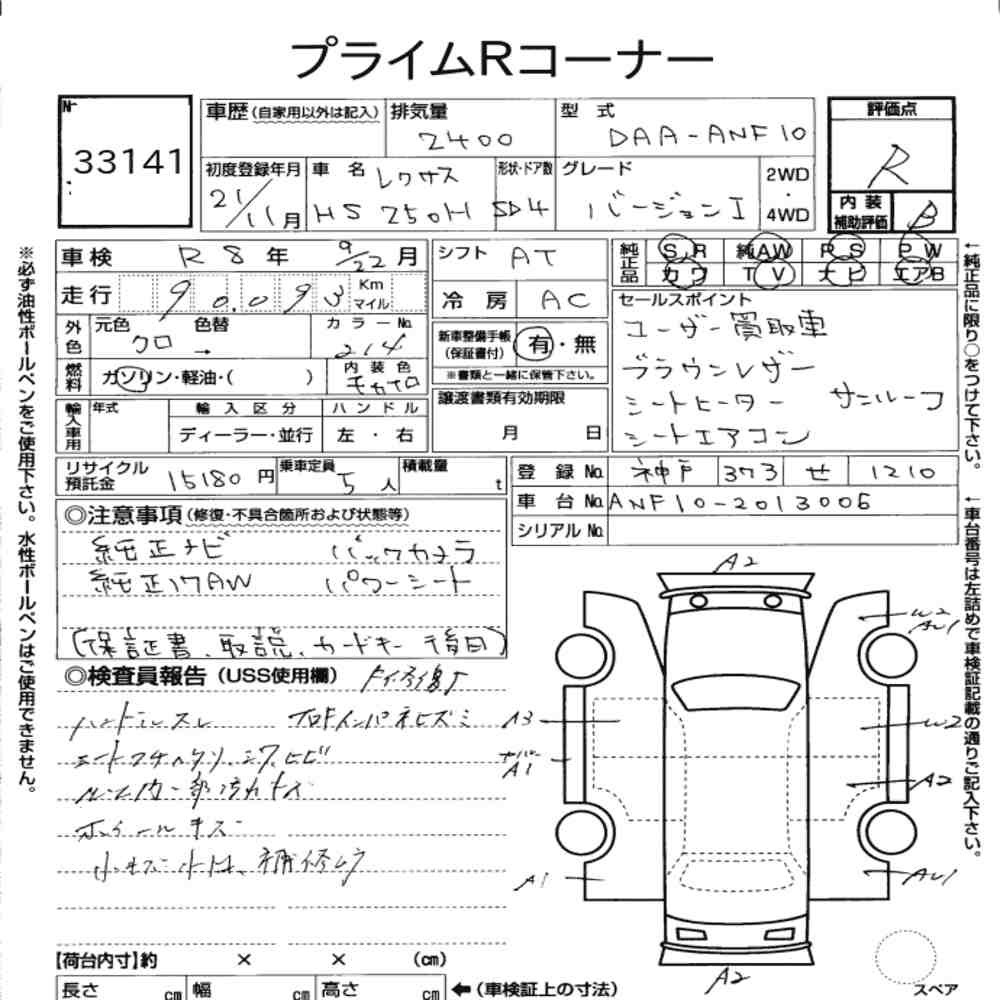 プライムRコーナー
No
33141
車歴(自家用以外は記入)
排気量
2400
型式
DAA-ANF10
評価点
R
内装補助評価
B
初度登録年月
21/11月
車名
レクサス
HS 250H
形状・ドア数
SD4
グレード
バージョンI
2WD・4WD
車検 R8年 9/22月
シフト AT
純正品
S,R 純AW P S P W
カワ T V ナビ エアB
走行 90.093 Km マイル
冷房 AC
セールスポイント
ユーザー買取車
ブラウンレザー
シートヒーター サンルーフ
シートエアコン
外色
元色 クロ
色替 →
カラーNo. 214
新車整備手帳(保証書付) 有・無
※書類と一緒に保管下さい。
燃料 ガソリン・軽油・( )
内装色
譲渡書類有効期限
月 日
輸入車用
年式
輸入区分
ハンドル
ディーラー・並行
左・右
リサイクル預託金 15180円
乗車定員 5人
積載量 t
登録No. 神戸 373 せ 1210
車台No. ANF10-2013006
シリアルNo.
◎注意事項(修復・不具合箇所および状態等)
純正ナビ バックカメラ
純正17AW パワーシート
(保証書、取説、カードキー後日)
◎検査員報告(USS使用欄)
ハンドルスレ
ホイールキズ
A2
W2
AU1
A3
W2
A1
A2
A1
AU1
A2
スペア
【荷台内寸】約 × × (cm)
長さ cm 幅 cm 高さ cm
←(車検証上の寸法)
※必ず油性ボールペンをご使用下さい。水性ボールペンはご使用できません。
←純正品に限り○をつけて下さい。
←車台番号は左詰めで車検証記載の通りご記入下さい。